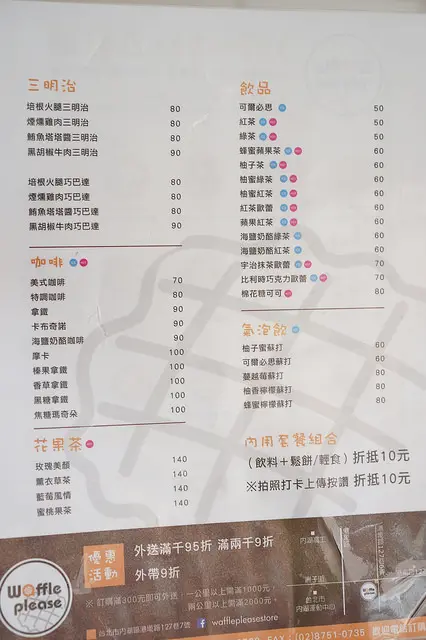 三明治
培根火腿三明治 80
煙燻雞肉三明治 80
鮪魚塔塔醬三明治 80
黑胡椒牛肉三明治 90
培根火腿巧巴達 80
煙燻雞肉巧巴達 80
鮪魚塔塔醬巧巴達 80
黑胡椒牛肉巧巴達 90
咖啡
美式咖啡 70
特調咖啡 80
拿鐵 90
卡布奇諾 90
海鹽奶酪咖啡 90
摩卡 100
榛果拿鐵 100
香草拿鐵 100
黑糖拿鐵 100
焦糖瑪奇朵 100
花果茶
玫瑰美顏 140
薰衣草茶 140
藍莓風情 140
蜜桃果茶 140
飲品
可爾必思 50
紅茶 50
綠茶 50
蜂蜜蘋果茶 60
柚子茶 60
柚蜜綠茶 60
柚蜜紅茶 60
紅茶歐蕾 60
蘋果紅茶 60
海鹽奶酪綠茶 60
海鹽奶酪紅茶 60
宇治抹茶歐蕾 70
比利時巧克力歐蕾 70
棉花糖可可 80
氣泡飲
柚子蜜蘇打 60
可爾必思蘇打 60
蔓越莓蘇打 80
柚香檸檬蘇打 80
蜂蜜檸檬蘇打 80
內用套餐組合
(飲料+鬆餅/輕食) 折抵10元
※拍照打卡上傳按讚 折抵10元
waffle please
優惠活動
外送滿千95折 滿兩千9折
外帶9折
※ 訂購滿300元即可外送,一公里以上需滿1000元,
兩公里以上需滿2000元。
wafflepleasestore
台北市內湖區港墘路127巷7號
FAX / (02)8751-0735 歡迎電話訂購